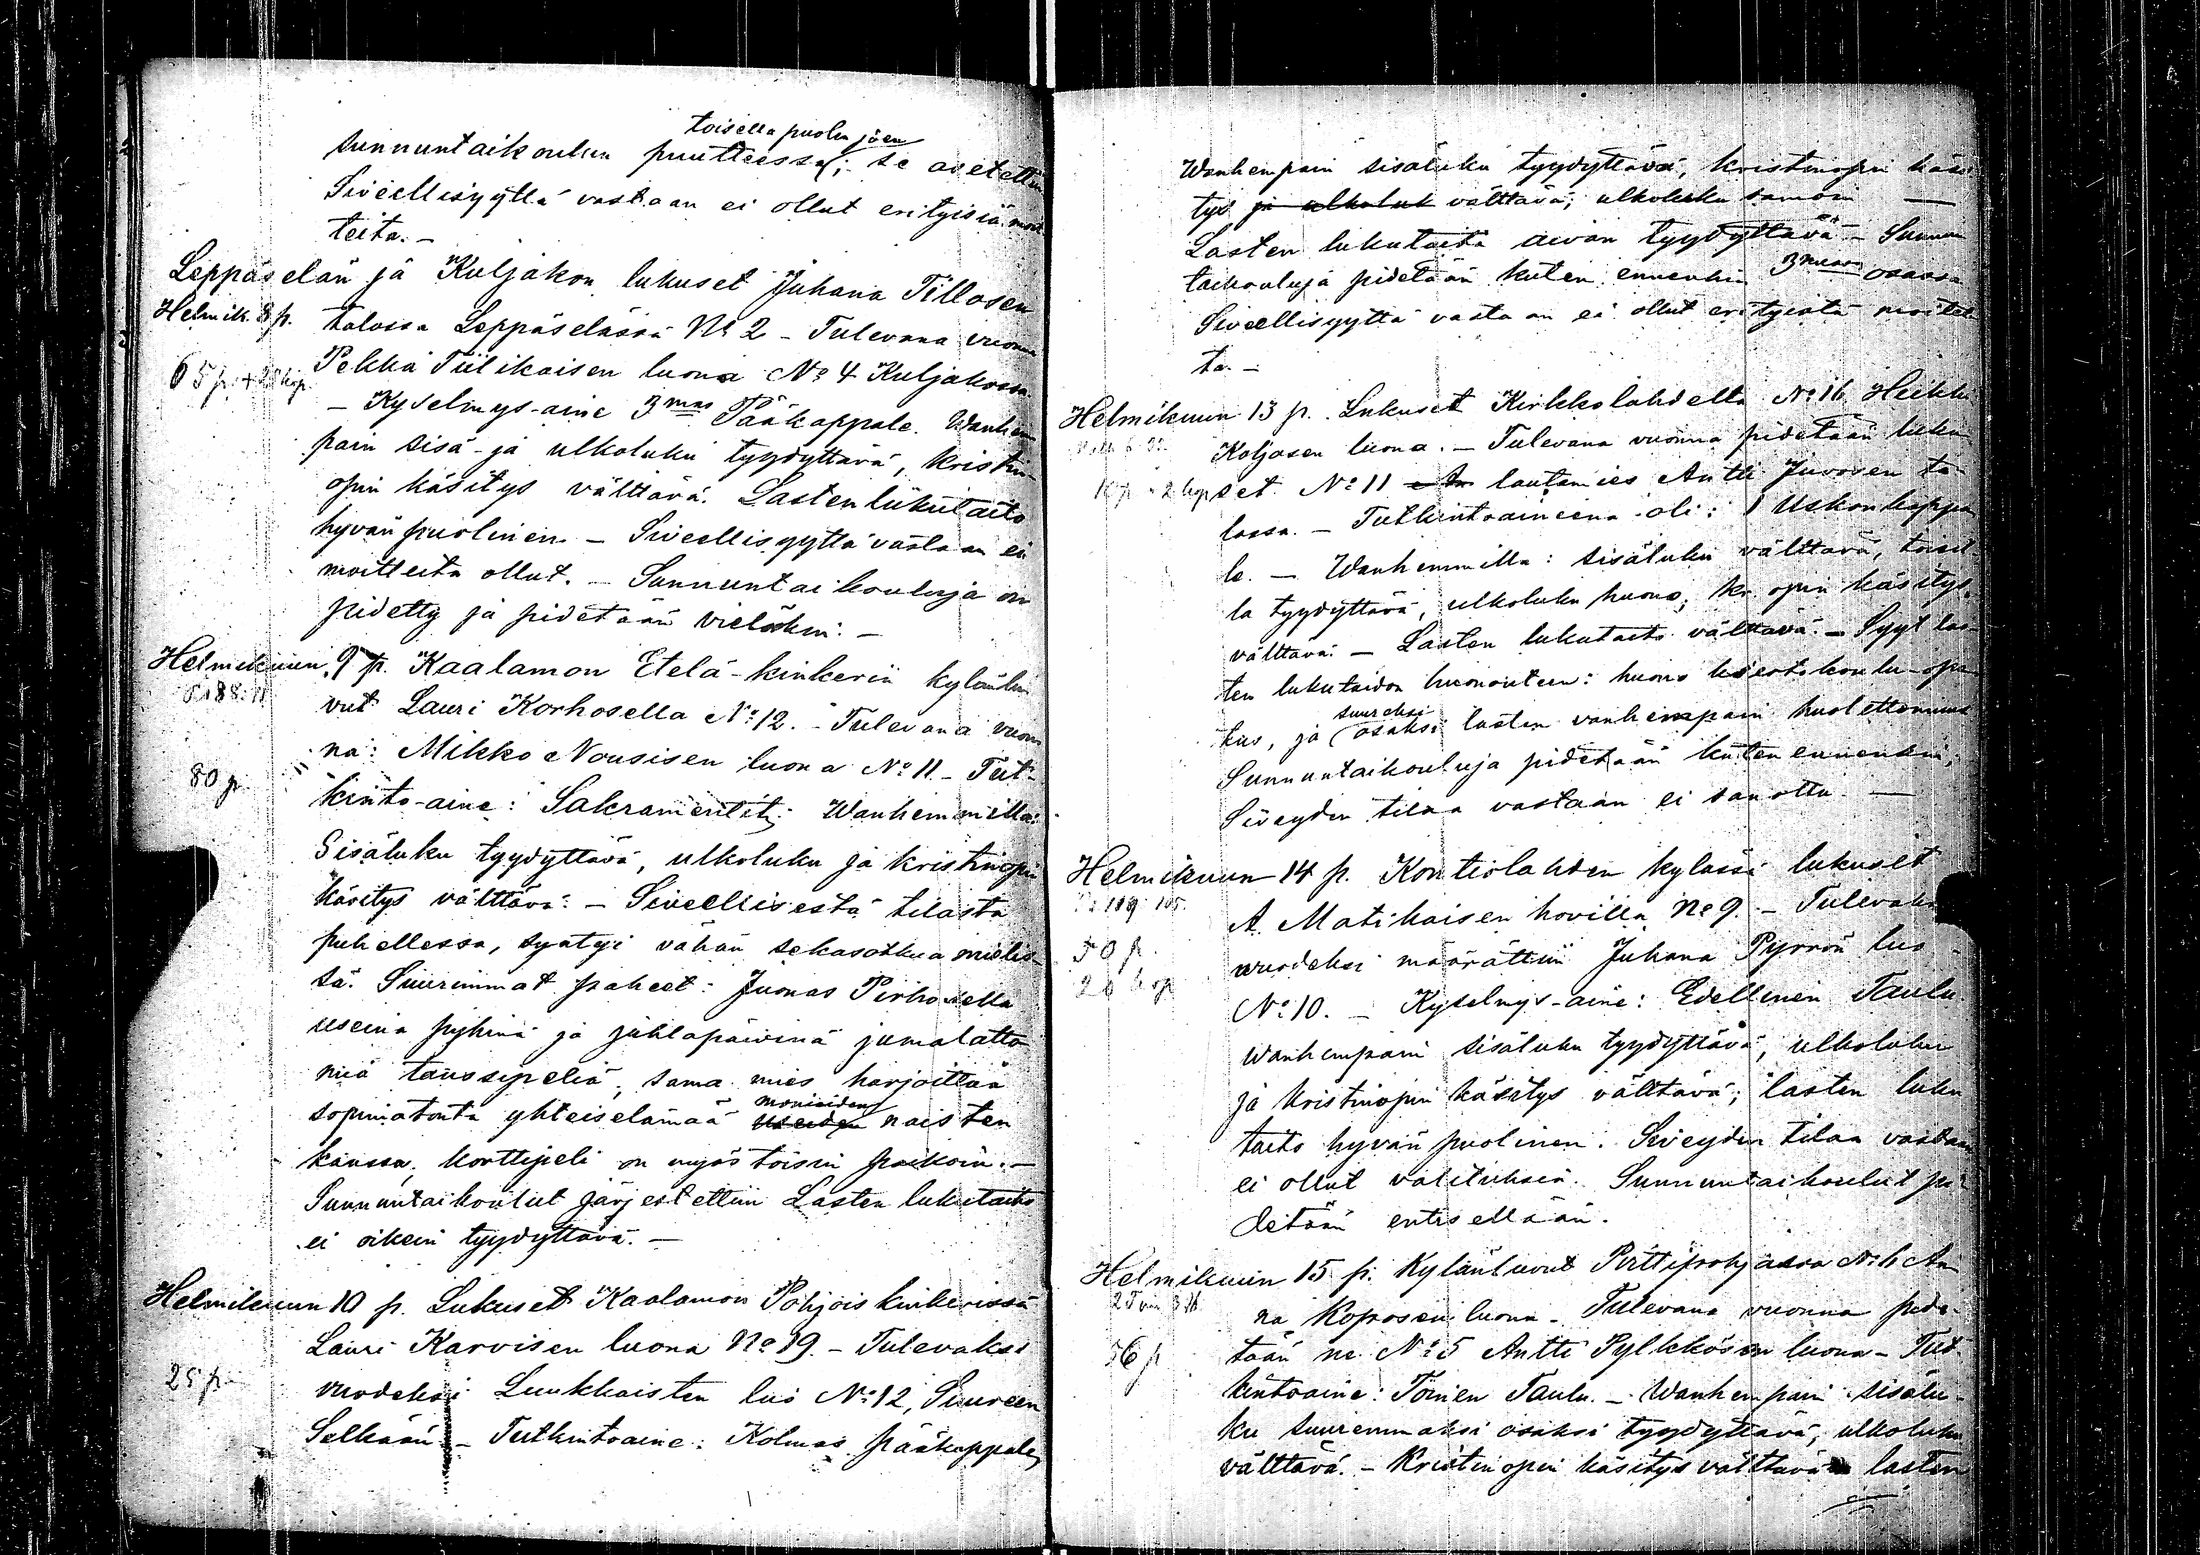 toisella puolen jöen
sunnuntaikoulun puutteessa; se asetettiin
Siveellisyyttä vastaan ei ollut erityisiä moit
teita. –
Leppäselän ja Kuljakon lukuset Juhana Tillosen
Helmik. 8 p. talossa Leppäselässä No 2 – Tulevana vuonna
65 p. + 20 kop. Pekka Tiilikaisen luona No 4 Kuljakossa
– Kyselmys-aine 3mas Pääkappale. Wanhem
pain sisä- ja ulkoluku tyydyttävä, kristin-
opin käsitys välttävä. Lasten lukutaito
hyvänpuolinen. – Siveellisyyttä vastaan ei
moitteita ollut. – Sunnuntaikouluja on
pidetty ja pidetään vieläkin. –
Helmikuun 9 p. Kaalamon Etelä-kinkerin kylänlu
vut Lauri Korhosella No 12. – Tulevana vuon
na: Mikko Nousisen luona No 11 – Tut-
80 p. kinto-aine: Sakramentit; Wanhemmilla:
Sisäluku tyydyttävä, ulkoluku ja kristinopin
käsitys välttävä: – Siveellisestä tilasta
puhellessa, syntyi vähän sekasotkua mielis-
sä. Suurimmat paheet: Juonas Pirhosella
useina pyhinä ja juhlapäivinä jumalatto
mia tanssipeliä, sama mies harjoittaa
moniaiden
sopimatonta yhteiselämää useiden naisten
kanssa, korttipeli on myös toisin paikoin. –
Sunnuntaikoulut järjestettiin Lasten lukutaito
ei oikein tyydyttävä. –
Helmikuun 10 p. Lukuset Kaalamon Pohjois kinkerissä
Lauri Karvisen luona No 19. – Tulevaksi
25 p. vuodeksi Luukkaisten luo No 12, Suureen
Selkään – Tutkintoaine: Kolmas pääkappale,
Wanhempain sisäluku tyydyttävä, kristinopin käsi
tys ja ulkoluk välttävä; ulkoluku samoin —
Lasten lukutaito aivan tyydyttävä – Sunnun
taikouluja pidetään kuten ennenkin 3 osassa
Siveellisyyttä vastaan ei ollut erityistä moitet
ta. –
Helmikuun 13 p. Lukuset Kirkkolahdella No 16 Heikki
Koljosen luona. – Tulevana vuonna pidetään luku
set No 11 lautamies Antti Juvosen ta
lossa. – Tutkintoaineena oli: 1 Uskonkappa
le. – Wanhemmilla: sisäluku välttävä, toisil-
la tyydyttävä, ulkoluku huono, kr. opin käsitys
välttävä: – Lasten lukutaito välttävä. – Syyt las-
ten lukutaidon huonouteen: huono kiertokoulu-ope
suureksi
tus, ja osaksi lasten vanhempain huolettomuus
Sunnuntaikouluja pidetään kuten ennenkin;
Siveyden tilaa vastaan ei sanottu. —
Helmikuun 14 p. Kontiolahden kylässä lukuset
A. Matikaisen hovilla No 9. – Tulevaksi
50 p. vuodeksi määrättiin Juhana Pyrrön luo
20 kop No 10. – Kyselmys-aine: Edellinen Taulu.
Wanhempain sisäluku tyydyttävä, ulkoluku
ja kristinopin käsitys välttävä; lasten luku
taito hyvänpuolinen. Siveyden tilaa vastaan
ei ollut valituksia. Sunnuntaikoulut pi-
detään entisellään.
Helmikuun 15 p. Kylänluvut Pirttipohjassa No 6 An
na Koposen luona. Tulevana vuonna pide-
56 p tään ne No 5 Antti Pylkkösen luona – Tut
kintoaine: Toinen Taulu. – Wanhempain sisälu-
ku suuremmaksi osaksi tyydyttävä, ulkoluku
välttävä. – Kristinopin käsitys välttävä lasten